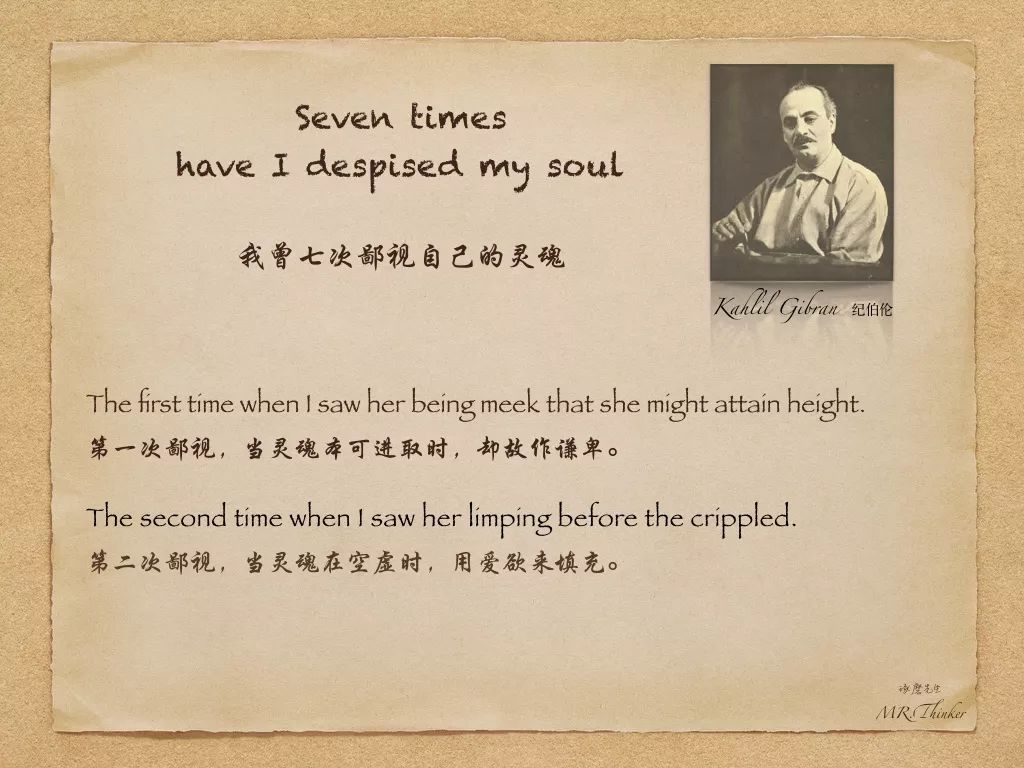 Seven times
have I despised my soul
我曾七次鄙视自己的灵魂
Kahlil Gibran 纪伯伦
The first time when I saw her being meek that she might attain height.
第一次鄙视，当灵魂本可进取时，却故作谦卑。
The second time when I saw her limping before the crippled.
第二次鄙视，当灵魂在空虚时，用爱欲来填充。
琢磨先生
MR.Thinker